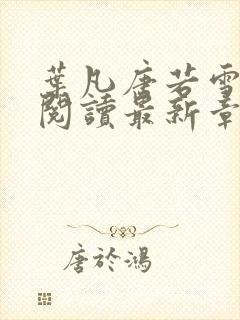 葉凡唐若雪
閱讀最新章
唐於鴻